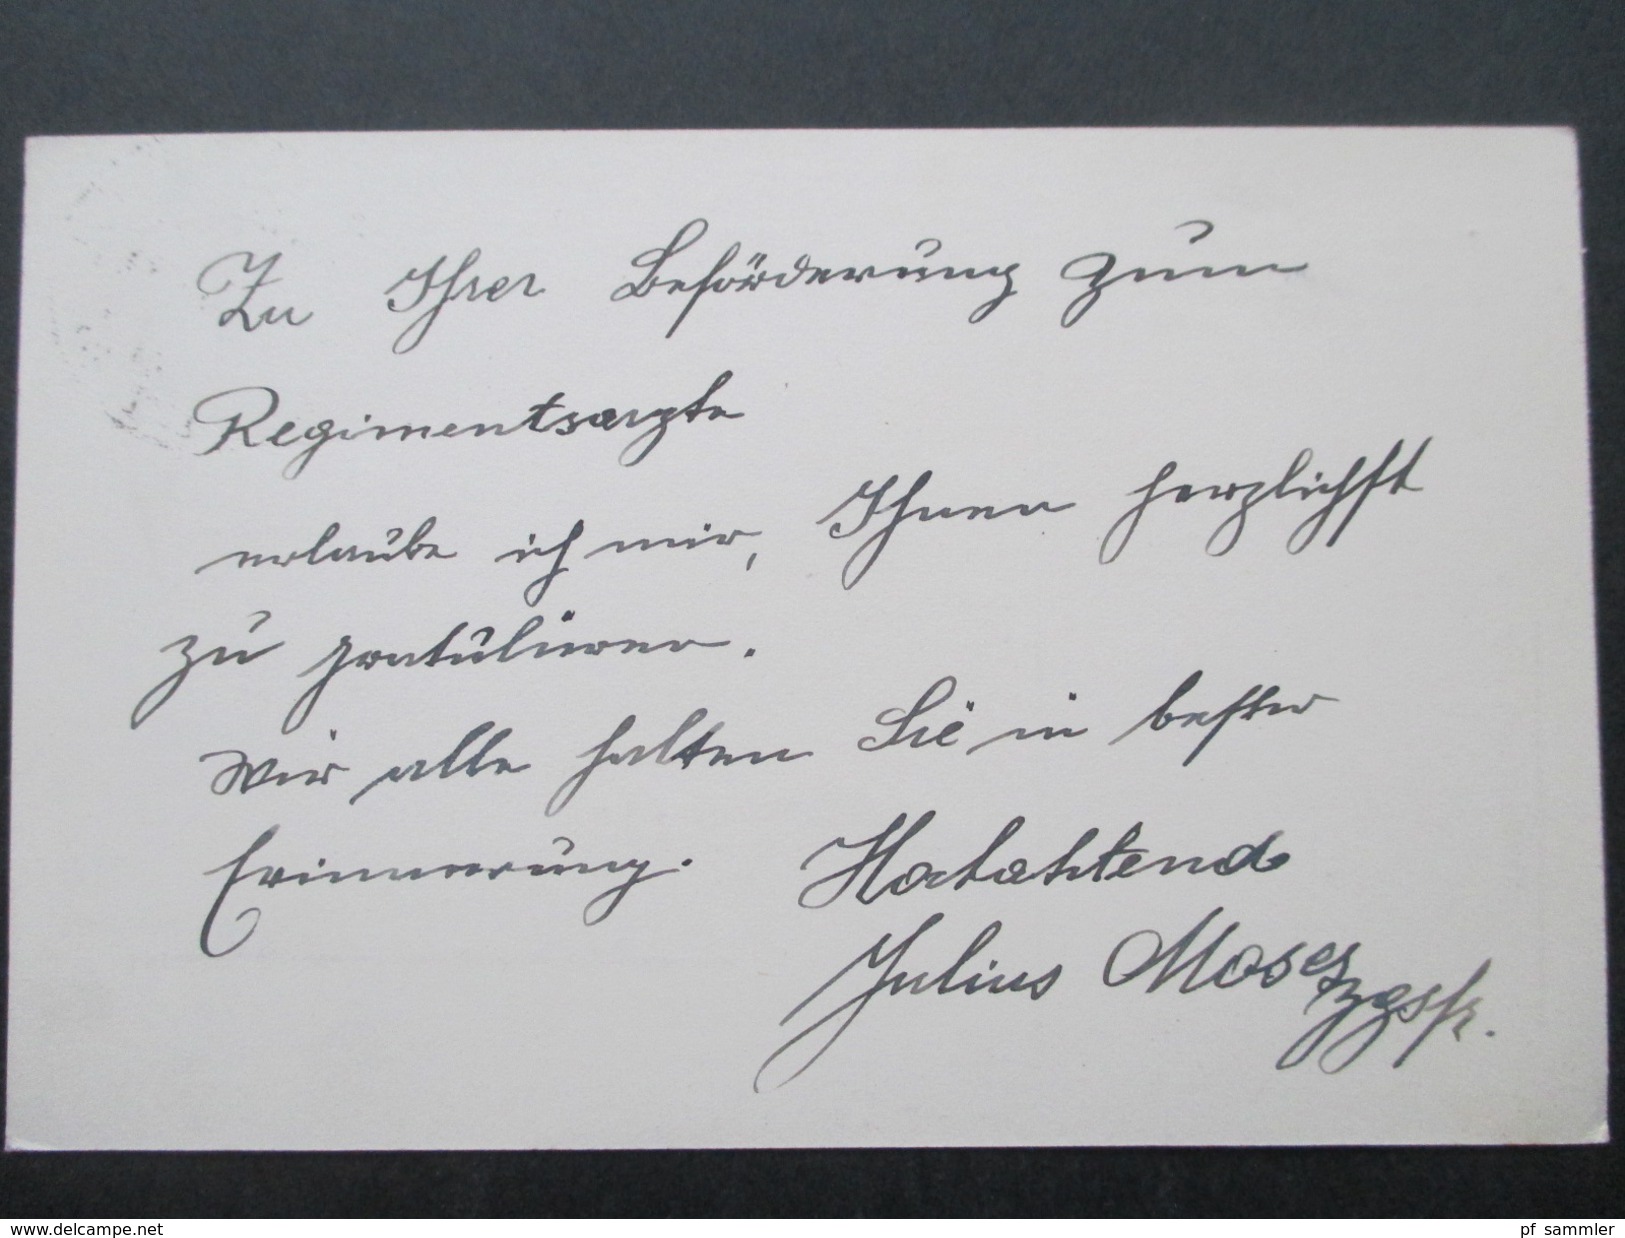 Zu Ihrer Beförderung zum
Regimentsarzte
erlaube ich mir, Ihnen herzlichst
zu gratulieren.
Wir alle halten Sie in bester
Erinnerung. Hochachtend
Julius Moses
www.delcampe.net
pf_sammler